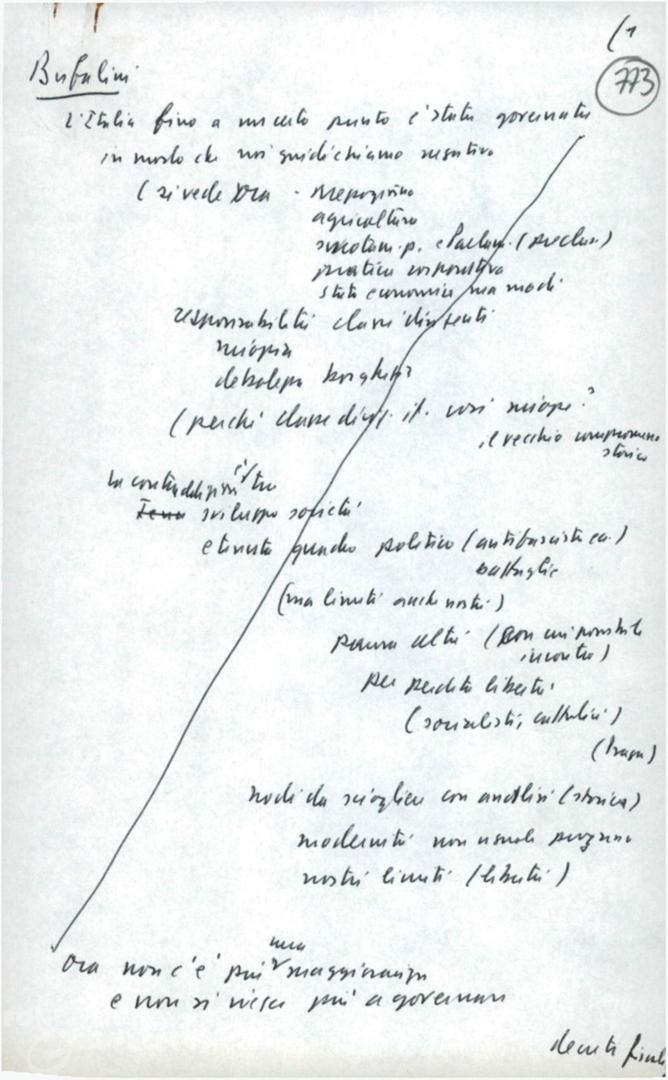 (1
773
Bufalini
L'Italia fino a un certo punto è stata governata
in modo che noi giudichiamo negativo
(si vede ora - Mezzogiorno
agricoltura
pratica corporativa
stato economia ma modi
responsabilità classi dirigenti
miopia
debolezza borghesia
(perché classe dirig. it. così miope?
il vecchio compromesso
storico
la contraddizione è tra
sviluppo società
e tenuta quadro politico (antifascista ea.)
battaglie
(ma limiti anche nostri)
paura altri (con cui possibile
incontro)
per perdita libertà
(socialisti, cattolici)
(Praga)
nodi da sciogliere con analisi (storica)
modernità non usuale
nostri limiti (libertà)
Ora non c'è più una maggioranza
e non si riesce più a governare
decreti